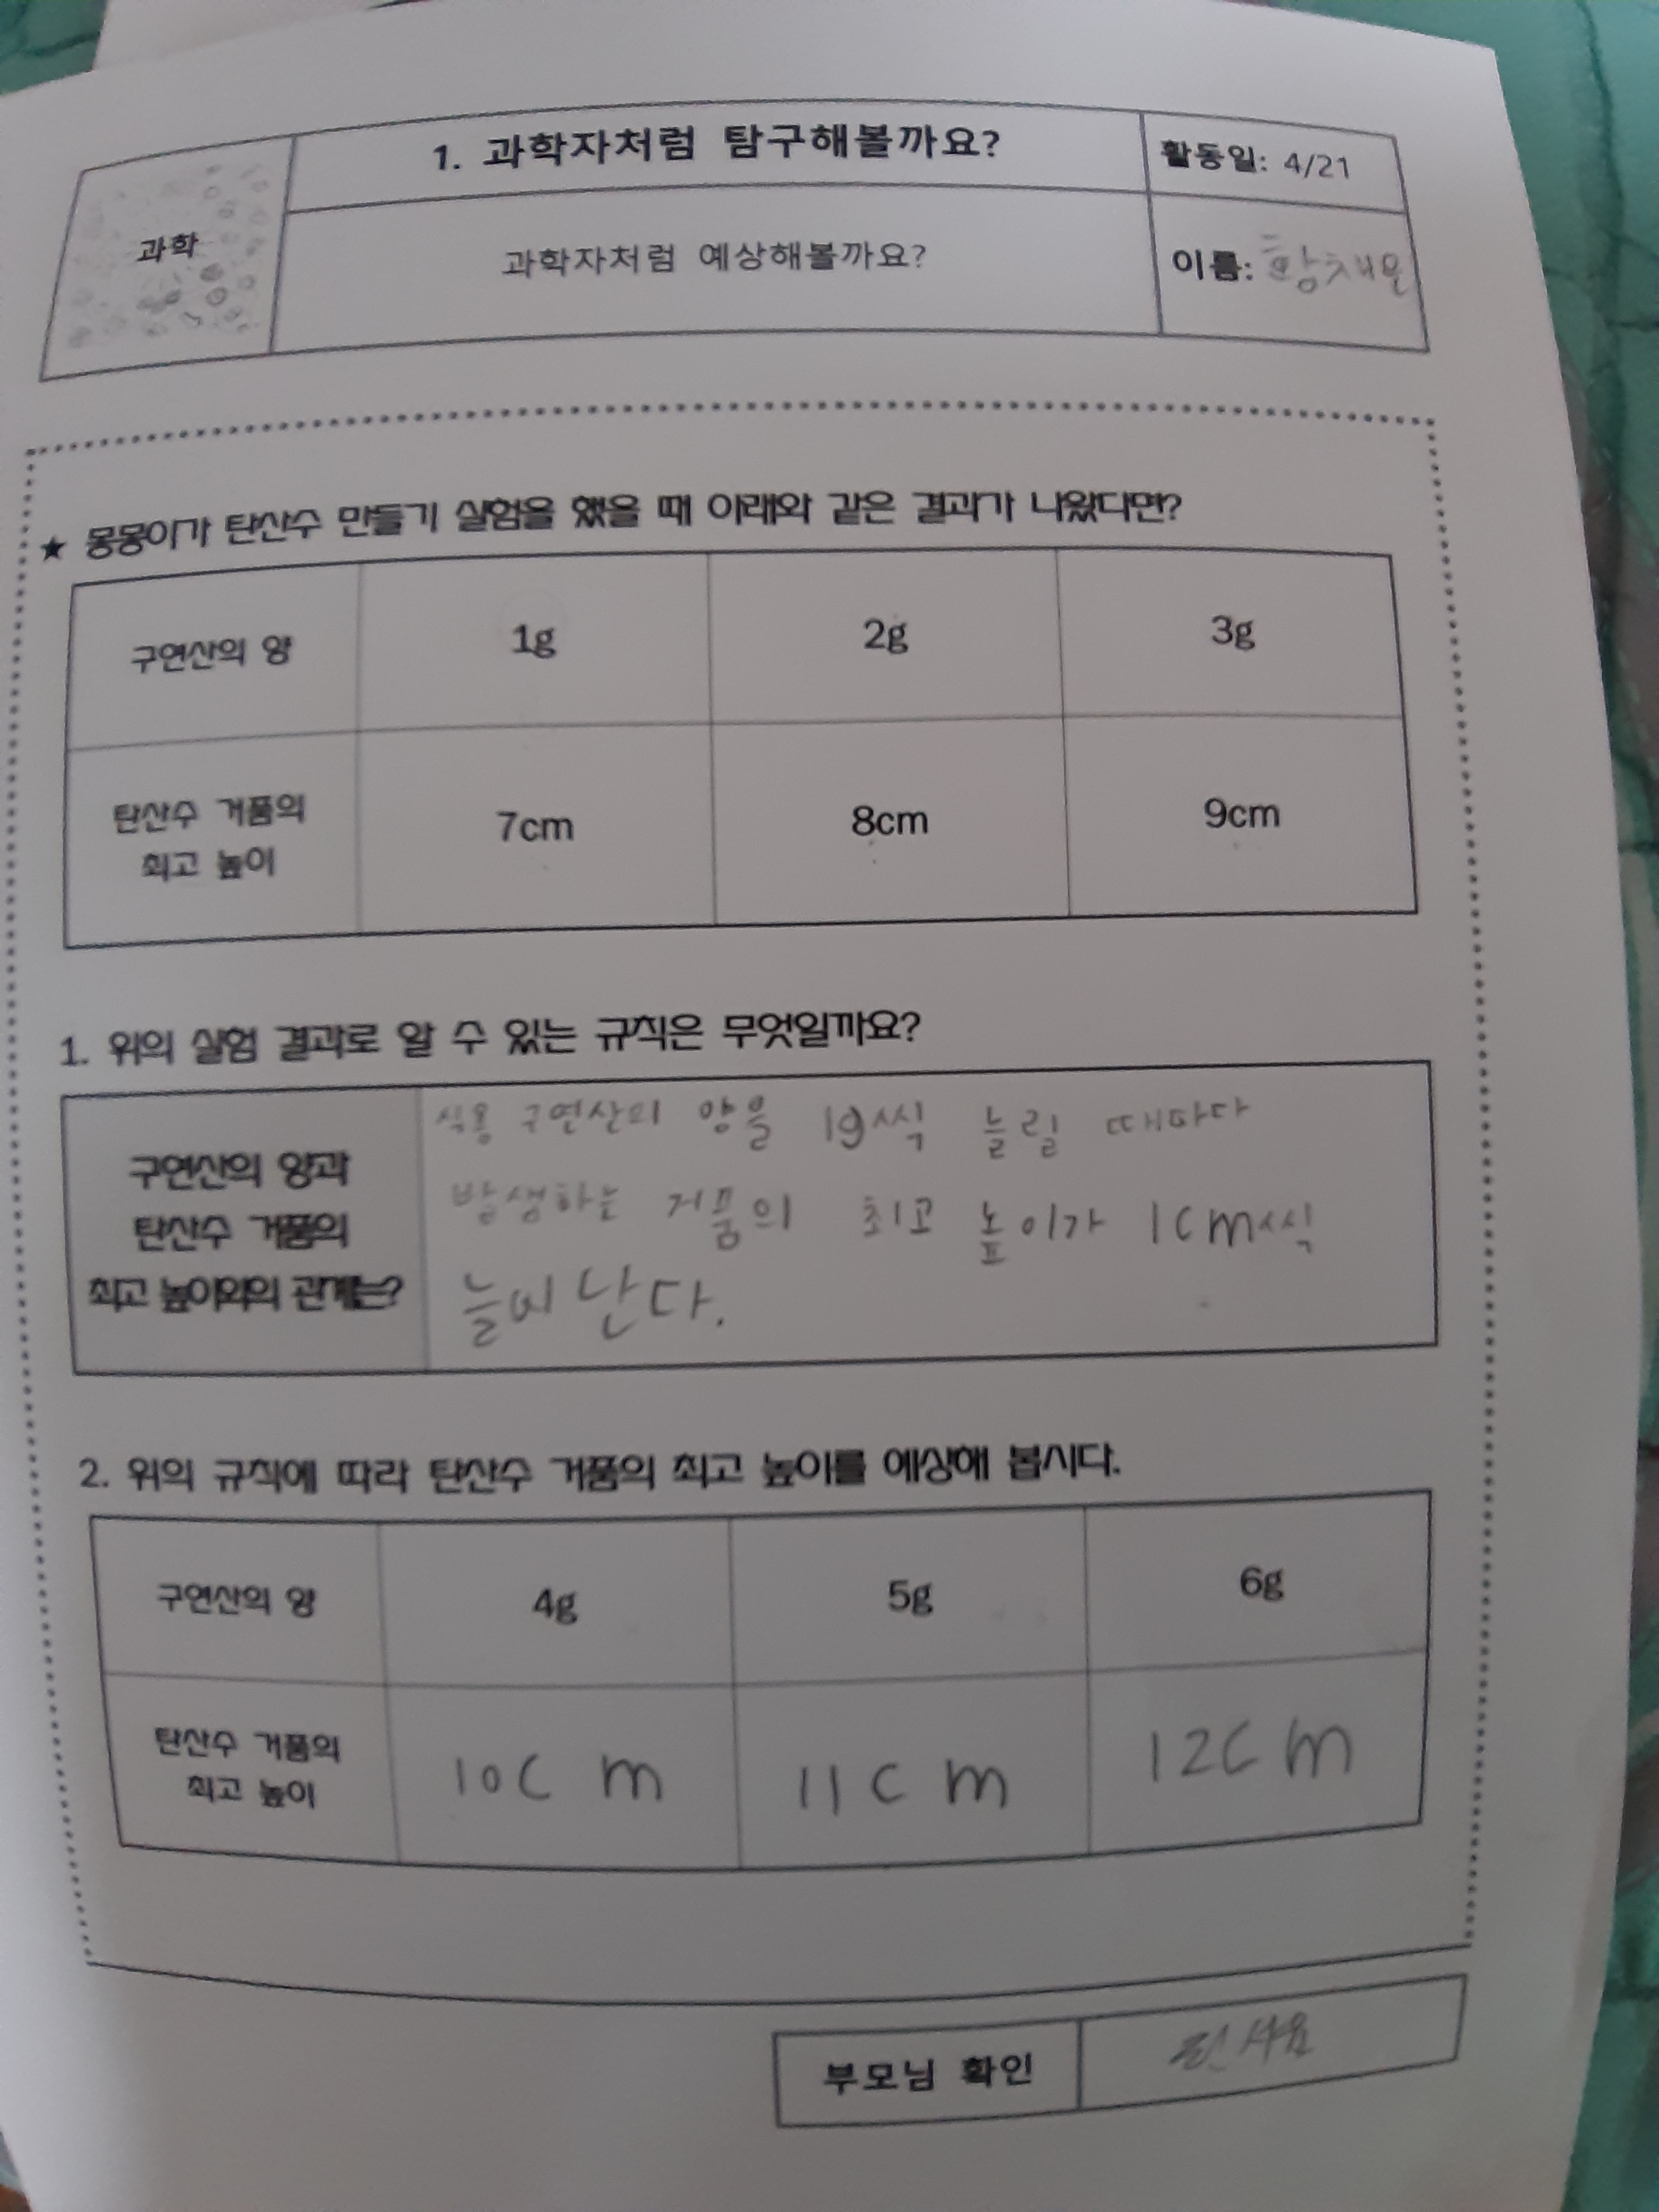 1. 과학자처럼 탐구해볼까요?
활동일: 4/21
과학
과학자처럼 예상해볼까요?
이름: 황채운
★ 몽몽이가 탄산수 만들기 실험을 했을 때 아래와 같은 결과가 나왔다면?
구연산의 양 1g 2g 3g
탄산수 거품의
최고 높이
7cm 8cm 9cm
1. 위의 실험 결과로 알 수 있는 규칙은 무엇일까요?
구연산의 양과
탄산수 거품의
최고 높이와의 관계는?
식용 구연산의 양을 1g씩 늘릴 때마다
발생하는 거품의 최고 높이가 1cm씩
늘어난다.
2. 위의 규칙에 따라 탄산수 거품의 최고 높이를 예상해 봅시다.
구연산의 양 4g 5g 6g
탄산수 거품의
최고 높이
10cm 11cm 12cm
부모님 확인